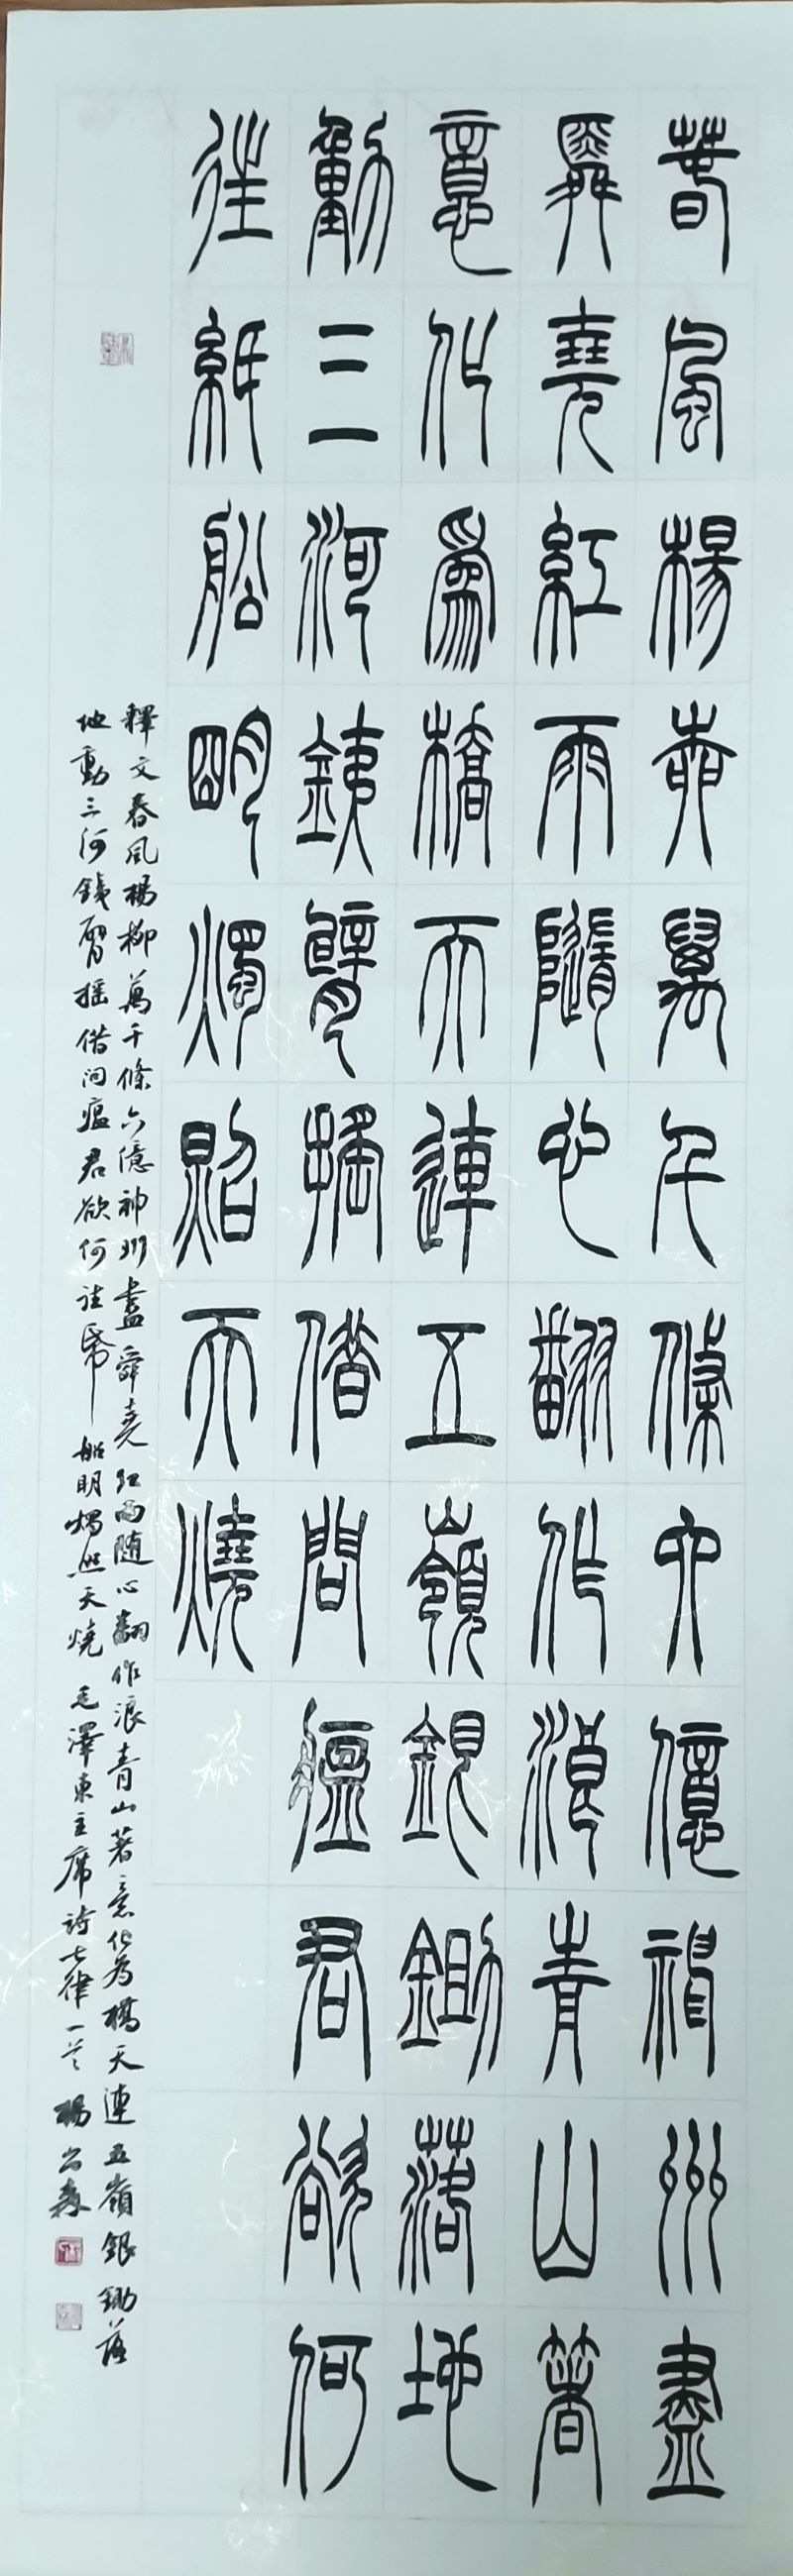 春風楊柳萬千條六億神州盡
舜堯紅雨隨心翻作浪青山著
意化為橋天連五嶺銀鋤落地
動三河鐵臂搖借問瘟君欲何
往紙船明燭照天燒
釋文春風楊柳萬千條六億神州盡舜堯紅雨随心翻作浪青山著意化为橋天連五嶺銀鋤落
地動三河鐵臂摇借问瘟君欲何往紙船明燭照天燒 毛澤東主席詩七律一首 楊